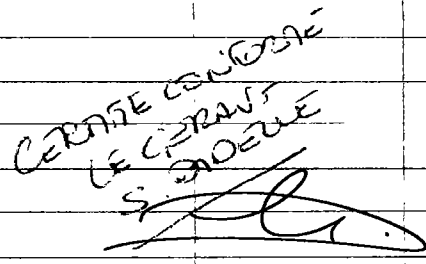 CERTIFIE CONFORME
LE GERANT
S.